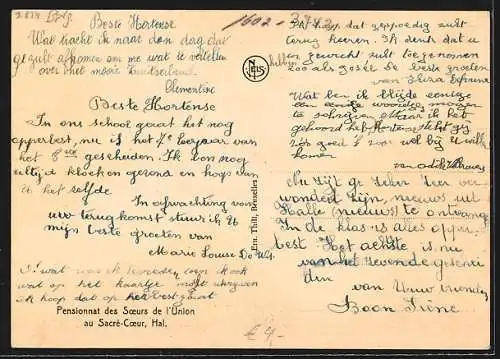 Beste Hortense
Wat tracht ik naar den dag dat
ge zult afkomen om me wat te vertellen
over het mooie Zwitserland.
Clementine
Beste Hortense
In ons school gaat het nog
opperbest, nu is het 7e leerjaar van
het 8ste gescheiden. Ik ben nog
altijd kloek en gezond en hoop van
u het zelfde.
In afwachting van
uw terugkomst stuur ik U
mijn beste groeten van
Marie Louise De W.
wat was ik tevreden van ook
wat op het kaartje mogen schrijven
ik hoop dat op het best gaat
Pensionnat des Sœurs de l'Union
au Sacré-Cœur, Hal.
Ern. Thill, Bruxelles
NELS
1602 -
Ik hoop dat ge spoedig zult
terug keeren. Ik denk dat u
in gewicht zult toegenomen
zoo als José de beste groeten
van Eliza
Wat ben ik blijde eenige
woordjes mogen
te schrijven
gehoord het Hortense het gij
zoo goed is voor wel bij U will
komen
van Odile
Nu zijt ge zeker zeer ver
wonderd zijn, nieuws uit
Halle (nieuws) te ontvangen
In de klas is alles opper
best. Het achtste is nu
van het zevende gescheiden
van Uw vriendin
Boon Irène
£ 4,-